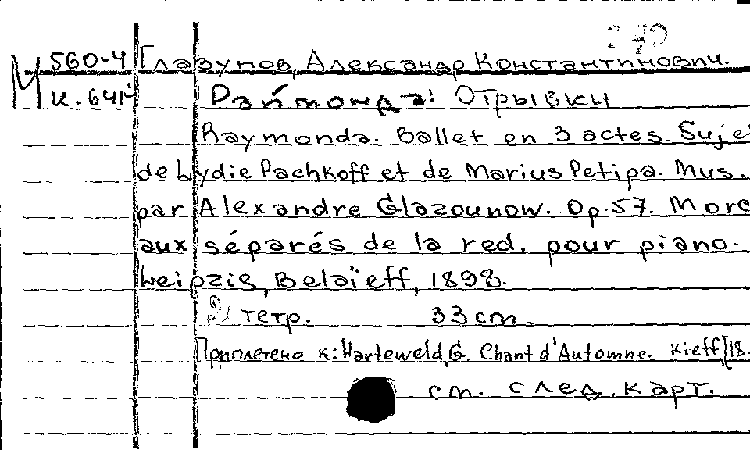 М 560-4 Глазунов, Александр Константинович.
к. 641 Раймонда: Отрывки
Raymonda. Ballet en 3 actes. Suje
de Lydie Pachkoff et de Marius Petipa. Mus.
par Alexandre Glazounow. Op. 57. Morc
aux séparés de la red. pour piano.
Leipzig, Belaïeff, 1898.
тетр. 33 cm.
Приплетено к: Harteweld, G. Chant d'Automne. Kieff, [18.
см. след. карт.